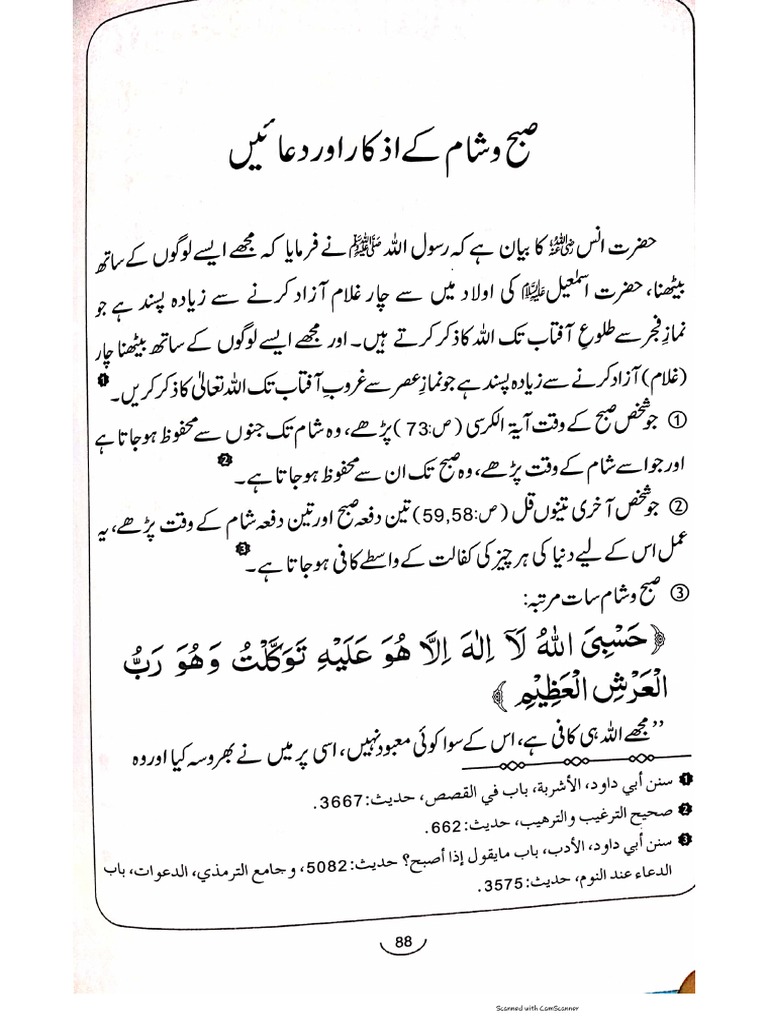 صبح و شام کے اذکار اور دعائیں
حضرت انس رضی اللہ عنہ کا بیان ہے کہ رسول اللہ ﷺ نے فرمایا کہ مجھے ایسے لوگوں کے ساتھ
بیٹھنا، حضرت اسمٰعیل علیہ السلام کی اولاد میں سے چار غلام آزاد کرنے سے زیادہ پسند ہے جو
نمازِ فجر سے طلوعِ آفتاب تک اللہ کا ذکر کرتے ہیں۔ اور مجھے ایسے لوگوں کے ساتھ بیٹھنا چار
(غلام) آزاد کرنے سے زیادہ پسند ہے جو نمازِ عصر سے غروبِ آفتاب تک اللہ تعالیٰ کا ذکر کریں۔ ❶
① جو شخص صبح کے وقت آیۃ الکرسی (ص:73) پڑھے، وہ شام تک جنوں سے محفوظ ہو جاتا ہے
اور جو اسے شام کے وقت پڑھے، وہ صبح تک ان سے محفوظ ہو جاتا ہے۔ ❷
② جو شخص آخری تینوں قل (ص:59,58) تین دفعہ صبح اور تین دفعہ شام کے وقت پڑھے، یہ
عمل اس کے لیے دنیا کی ہر چیز کی کفالت کے واسطے کافی ہو جاتا ہے۔ ❸
③ صبح و شام سات مرتبہ:
﴿حَسْبِىَ اللّٰهُ لَآ اِلٰهَ اِلَّا هُوَ عَلَيْهِ تَوَكَّلْتُ وَهُوَ رَبُّ
الْعَرْشِ الْعَظِيْمِ﴾
”مجھے اللہ ہی کافی ہے، اس کے سوا کوئی معبود نہیں، اسی پر میں نے بھروسہ کیا اور وہ
❶ سنن أبي داود، الأشربة، باب في القصص، حديث:3667.
❷ صحيح الترغيب والترهيب، حديث:662.
❸ سنن أبي داود، الأدب، باب مايقول إذا أصبح؟ حديث:5082، وجامع الترمذي، الدعوات، باب
الدعاء عند النوم، حديث:3575.
88
Scanned with CamScanner